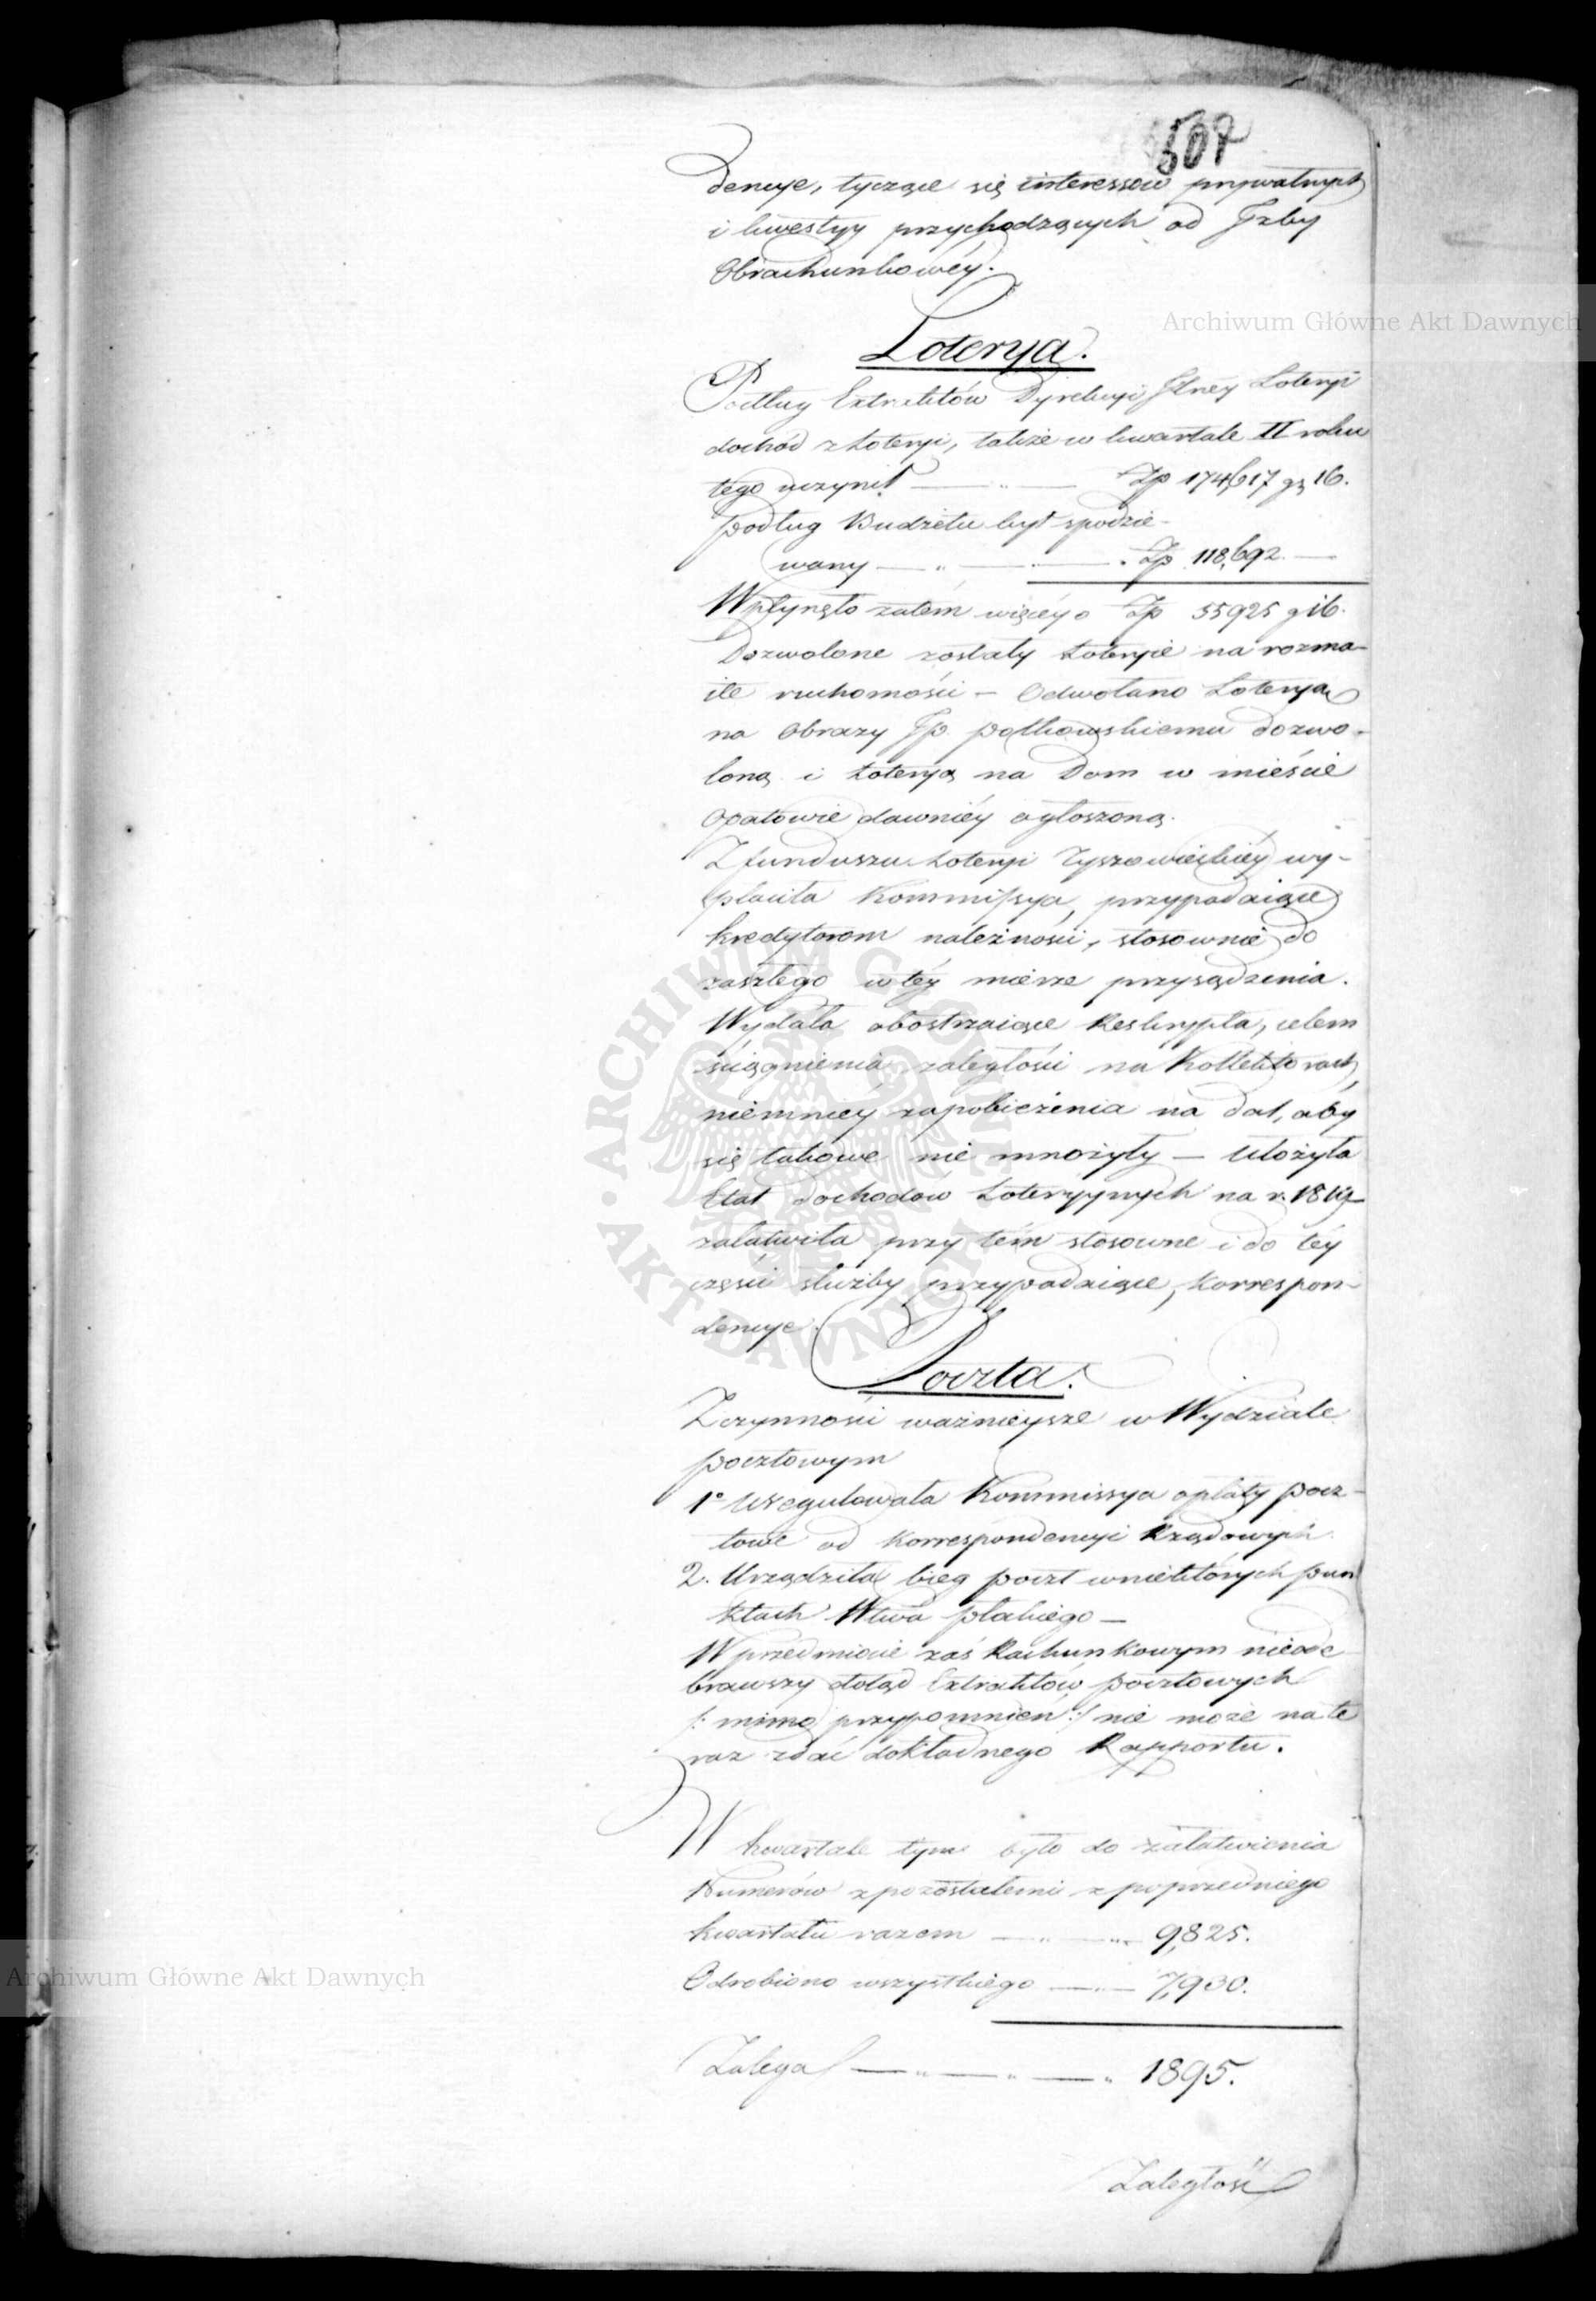 507
dencye, tyczące się interessów prywatnych
i kwestyy przychodzących od Jzby
Obrachunkowéy.
Loterya.
Podług Extraktów Dyrekcyi Jlney Loteryi
dochód z Loteryi, także w kwartale II roku
tego uczynił — „ — Zp 174,617 gr 16.
podług Budżetu był spodzie-
wany — „ — „ Zp 118,692. —
Wpłynęło zatém więcéy o Zp 55925 g 16.
Dozwolone zostały Loterye na rozma-
ite ruchomości — Odwołano Loteryą
na Obrazy JP. Dozwo-
loną i Loteryą na Dom w mieście
Opatowie dawniéy ogłoszoną.
Z funduszu Loteryi Tyszowieckiéy wy-
płaciła Kommissya, przypadaiące
kredytorom należności, stosownie do
zaszłego w téy mierze przysądzenia.
Wydała obostrzaiące Reskrypta, celem
ściągnienia zaległości na Kollektorach
niemniéy zapobieżenia na dal, aby
się takowe nie mnożyły — Ułożyła
Etat dochodów Loteryynych na r. 1819
załatwiła przy tém stosowne i do téy
części służby przypadaiące, korrespon-
dencye.
Poczta.
Z czynności ważnieysze w Wydziale
pocztowym
1° Uregulowała Kommissya opłaty pocz-
towe od Korrespondencyi Rządowych
2. Urządziła bieg poczt w niektórych pun
ktach Wtwa płockiego —
W przedmiocie zaś Rachunkowym nieode
brawszy dotąd Extraktów pocztowych
/: mimo przypomnień :/ nie może na te
raz zdać dokładnego Rapportu.
W kwartale tym było do załatwienia
Numerów z pozostałemi z poprzedniego
kwartału razem — „ — „ 9,825.
Odrobiono wszystkiego — „ — 7,930.
Zalega — „ — „ — „ 1895.
Zaległość
Archiwum Główne Akt Dawnych
Archiwum Główne Akt Dawnych
ARCHIWUM GŁÓWNE AKT DAWNYCH